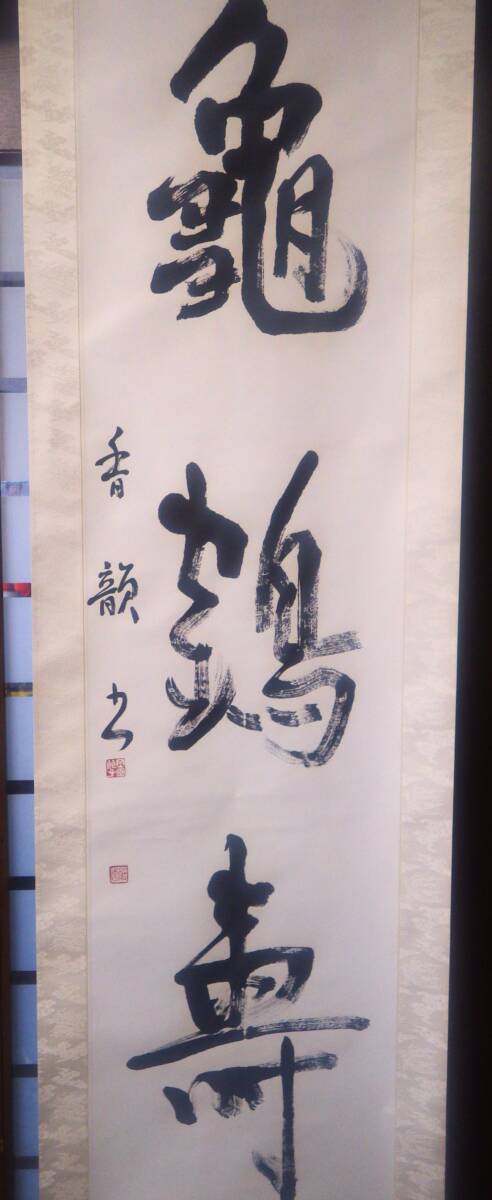 龜鶴壽
香韻书